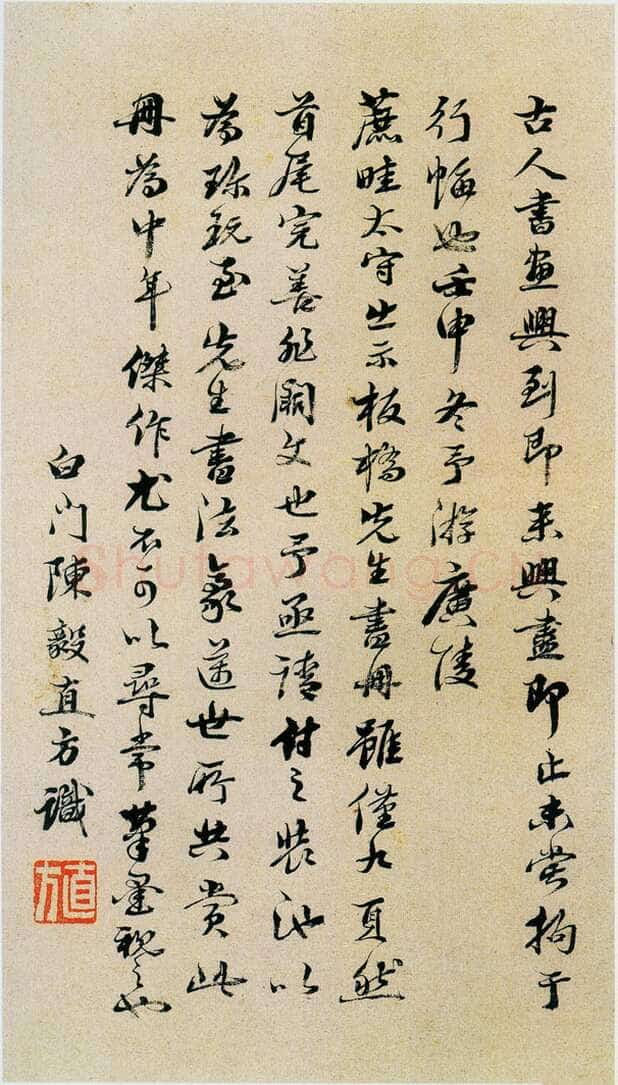 古人書畫興到即來興盡即止未嘗拘于
行幅也壬申冬予游廣陵
蔗畦太守出示板橋先生畫冊雖僅九頁然
首尾完善非闕文也予亟請付之裝池以
為珍玩至先生書法豪邁世所共賞此
冊為中年傑作尤不可以尋常筆墨視之也
白门陳毅直方識
直方
Shufawang.Cn